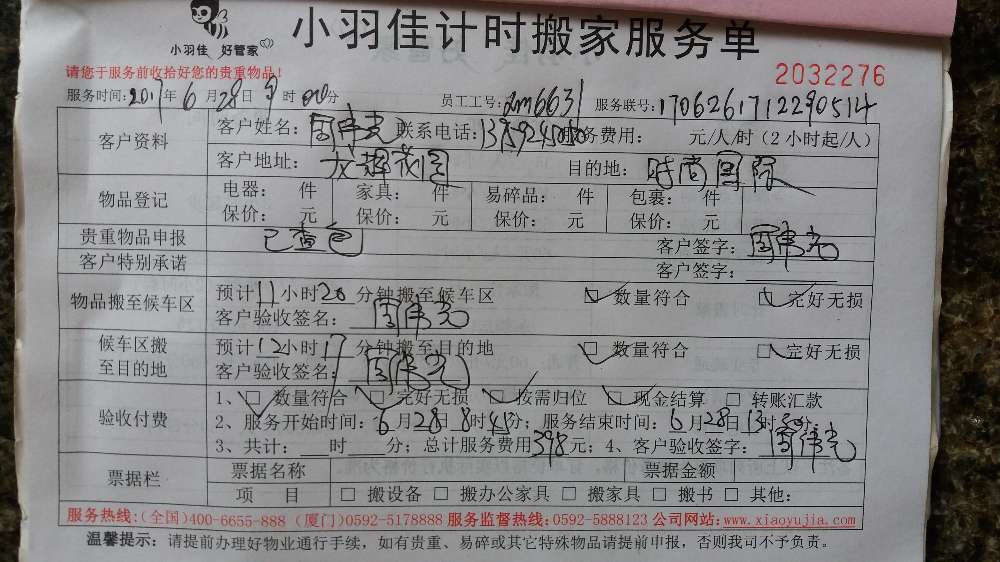 小羽佳 好管家
小羽佳计时搬家服务单
请您于服务前收拾好您的贵重物品！
2032276
服务时间：2017年6月28日 时00分 员工工号：xm6631 服务联号：170626171229 0514
客户资料 客户姓名：周伟光 联系电话： 服务费用： 元/人/时（2小时起/人）
客户地址： 花园 目的地：时尚国际
物品登记 电器： 件 家具： 件 易碎品： 件 包裹： 件
保价： 元 保价： 元 保价： 元 保价： 元
贵重物品申报 已查包 客户签字：周伟光
客户特别承诺 客户签字：
物品搬至候车区 预计11小时20分钟搬至候车区 □数量符合 □完好无损
客户验收签名：周伟光
候车区搬至目的地 预计12小时17分钟搬至目的地 □数量符合 □完好无损
客户验收签名：周伟光
验收付费 1、□数量符合 □完好无损 □按需归位 □现金结算 □转账汇款
2、服务开始时间：6月28日8时45分；服务结束时间：6月28日13时 分；
3、共计： 时 分；总计服务费用398元；4、客户验收签字：周伟光
票据栏 票据名称 票据金额
项 目 □搬设备 □搬办公家具 □搬家具 □搬书 □其他：
服务热线：(全国)400-6655-888 (厦门)0592-5178888 服务监督热线：0592-5888123 公司网站：www.xiaoyujia.com
温馨提示：请提前办理好物业通行手续，如有贵重、易碎或其它特殊物品请提前申报，否则我司不予负责。